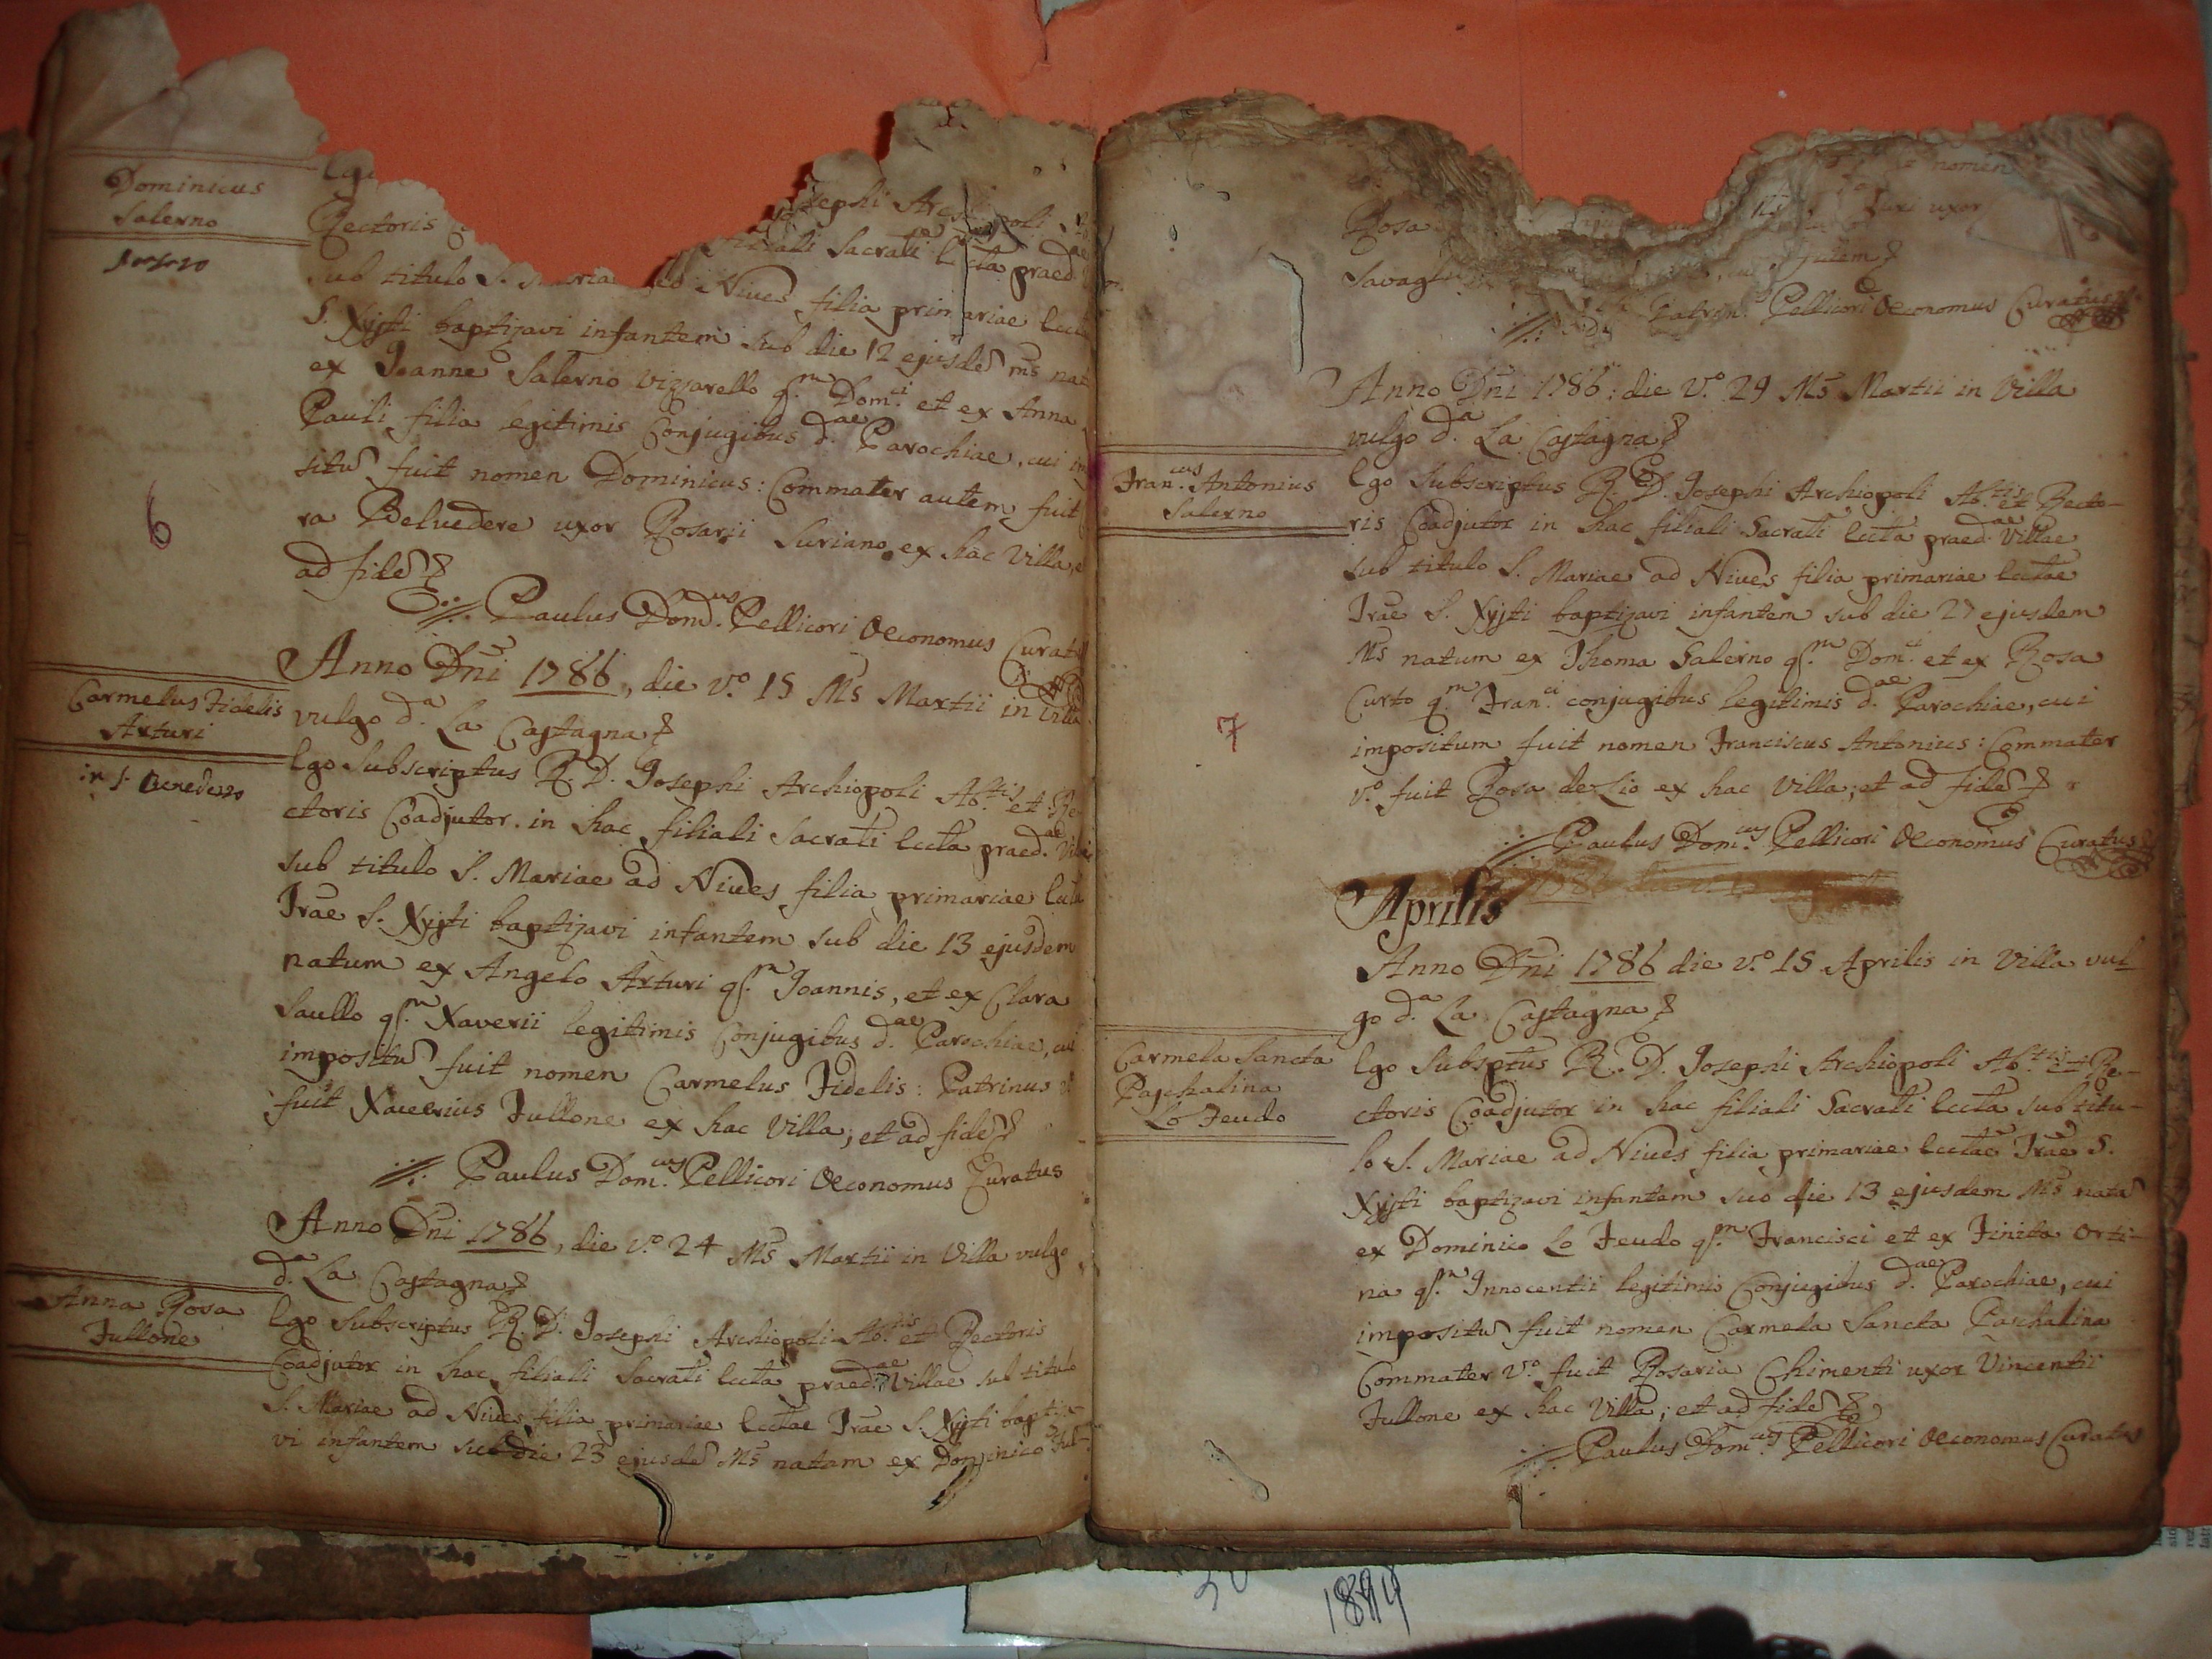 Dominicus
Salerno
Ego
Rectoris
sephi Archiopoli
filiali Sacrati Eccta praed.ae
sub titulo S. Maria ad Nives filia primariae Eccta
S. Xysti baptizavi infantem sub die 12 ejusde ms nat
ex Joanne Salerno Vizzarello q.m Dom.ci et ex Anna
Pauli filia legitimis Conjugibus d.ae Parochiae, cui im
situ fuit nomen Dominicus: Commater autem fuit
ra Belvedere uxor Rosarii Suriano ex hac Villa, e
ad fide
Paulus Dom.cus Pellicori Oeconomus Curat
6
Anno Dni 1786, die v.o 15 Ms Martii in Villa
vulgo d.a La Castagna
Carmelus Fidelis
Arturi
in S. Benedetto
Ego Subscriptus R. D. Josephi Archiopoli Ab.tis et Re
ctoris Coadjutor in hac filiali Sacrati Eccta praed.ae Villae
sub titulo S. Mariae ad Nives filia primariae Eccta
Trae S. Xysti baptizavi infantem sub die 13 ejusdem
natum ex Angelo Arturi q.m Joannis, et ex Clara
Saullo q.m Xaverii legitimis Conjugibus d.ae Parochiae, cui
impositu fuit nomen Carmelus Fidelis: Patrinus v
fuit Xaverius Fullone ex hac Villa; et ad fide
Paulus Dom.cus Pellicori Oeconomus Curatus
Anno Dni 1786, die v.o 24 Ms Martii in Villa vulgo
d.a La Castagna
Anna Rosa
Fullone
Ego Subscriptus R. D. Josephi Archiopoli Ab.tis et Rectoris
Coadjutor in hac filiali Sacrati Eccta praed.ae Villae sub titulo
S. Mariae ad Nives filia primariae Ecctae Trae S. Xysti baptiza
vi infantem sub die 23 ejusde Ms natam ex Dominico Ful-
nomen
Rosa uxor
Savagli fidem
Patrin. Pellicori Oeconomus Curatus
Anno Dni 1786: die v.o 29 Ms Martii in Villa
vulgo d.a La Castagna
Fran.cus Antonius
Salerno
Ego Subscriptus R. D. Josephi Archiopoli Ab.tis et Recto-
ris Coadjutor in hac filiali Sacrati Eccta praed.ae Villae
sub titulo S. Mariae ad Nives filia primariae Ecctae
Trae S. Xysti baptizavi infantem sub die 27 ejusdem
Ms natum ex Thoma Salerno q.m Dom.ci et ex Rosa
Curto q.m Fran.ci conjugibus legitimis d.ae Parochiae, cui
impositum fuit nomen Franciscus Antonius: Commater
v.o fuit Rosa de Lio ex hac Villa; et ad fide
Paulus Dom.cus Pellicori Oeconomus Curatus
7
Aprilis
Anno Dni 1786 die v.o 15 Aprilis in Villa vul
go d.a La Castagna
Carmela Sancta
Paschalina
Lo Feudo
Ego Subsptus R. D. Josephi Archiopoli Ab.tis et Re-
ctoris Coadjutor in hac filiali Sacrati Eccta sub titu-
lo S. Mariae ad Nives filia primariae Ecctae Trae S.
Xysti baptizavi infantem sub die 13 ejusdem Ms nata
ex Dominico Lo Feudo q.m Francisci et ex Finita Orti-
na q.m Innocentii legitimis Conjugibus d.ae Parochiae, cui
impositu fuit nomen Carmela Sancta Paschalina
Commater v.o fuit Rosaria Chimenti uxor Vincentii
Fullone ex hac Villa; et ad fide
Paulus Dom.cus Pellicori Oeconomus Curatus